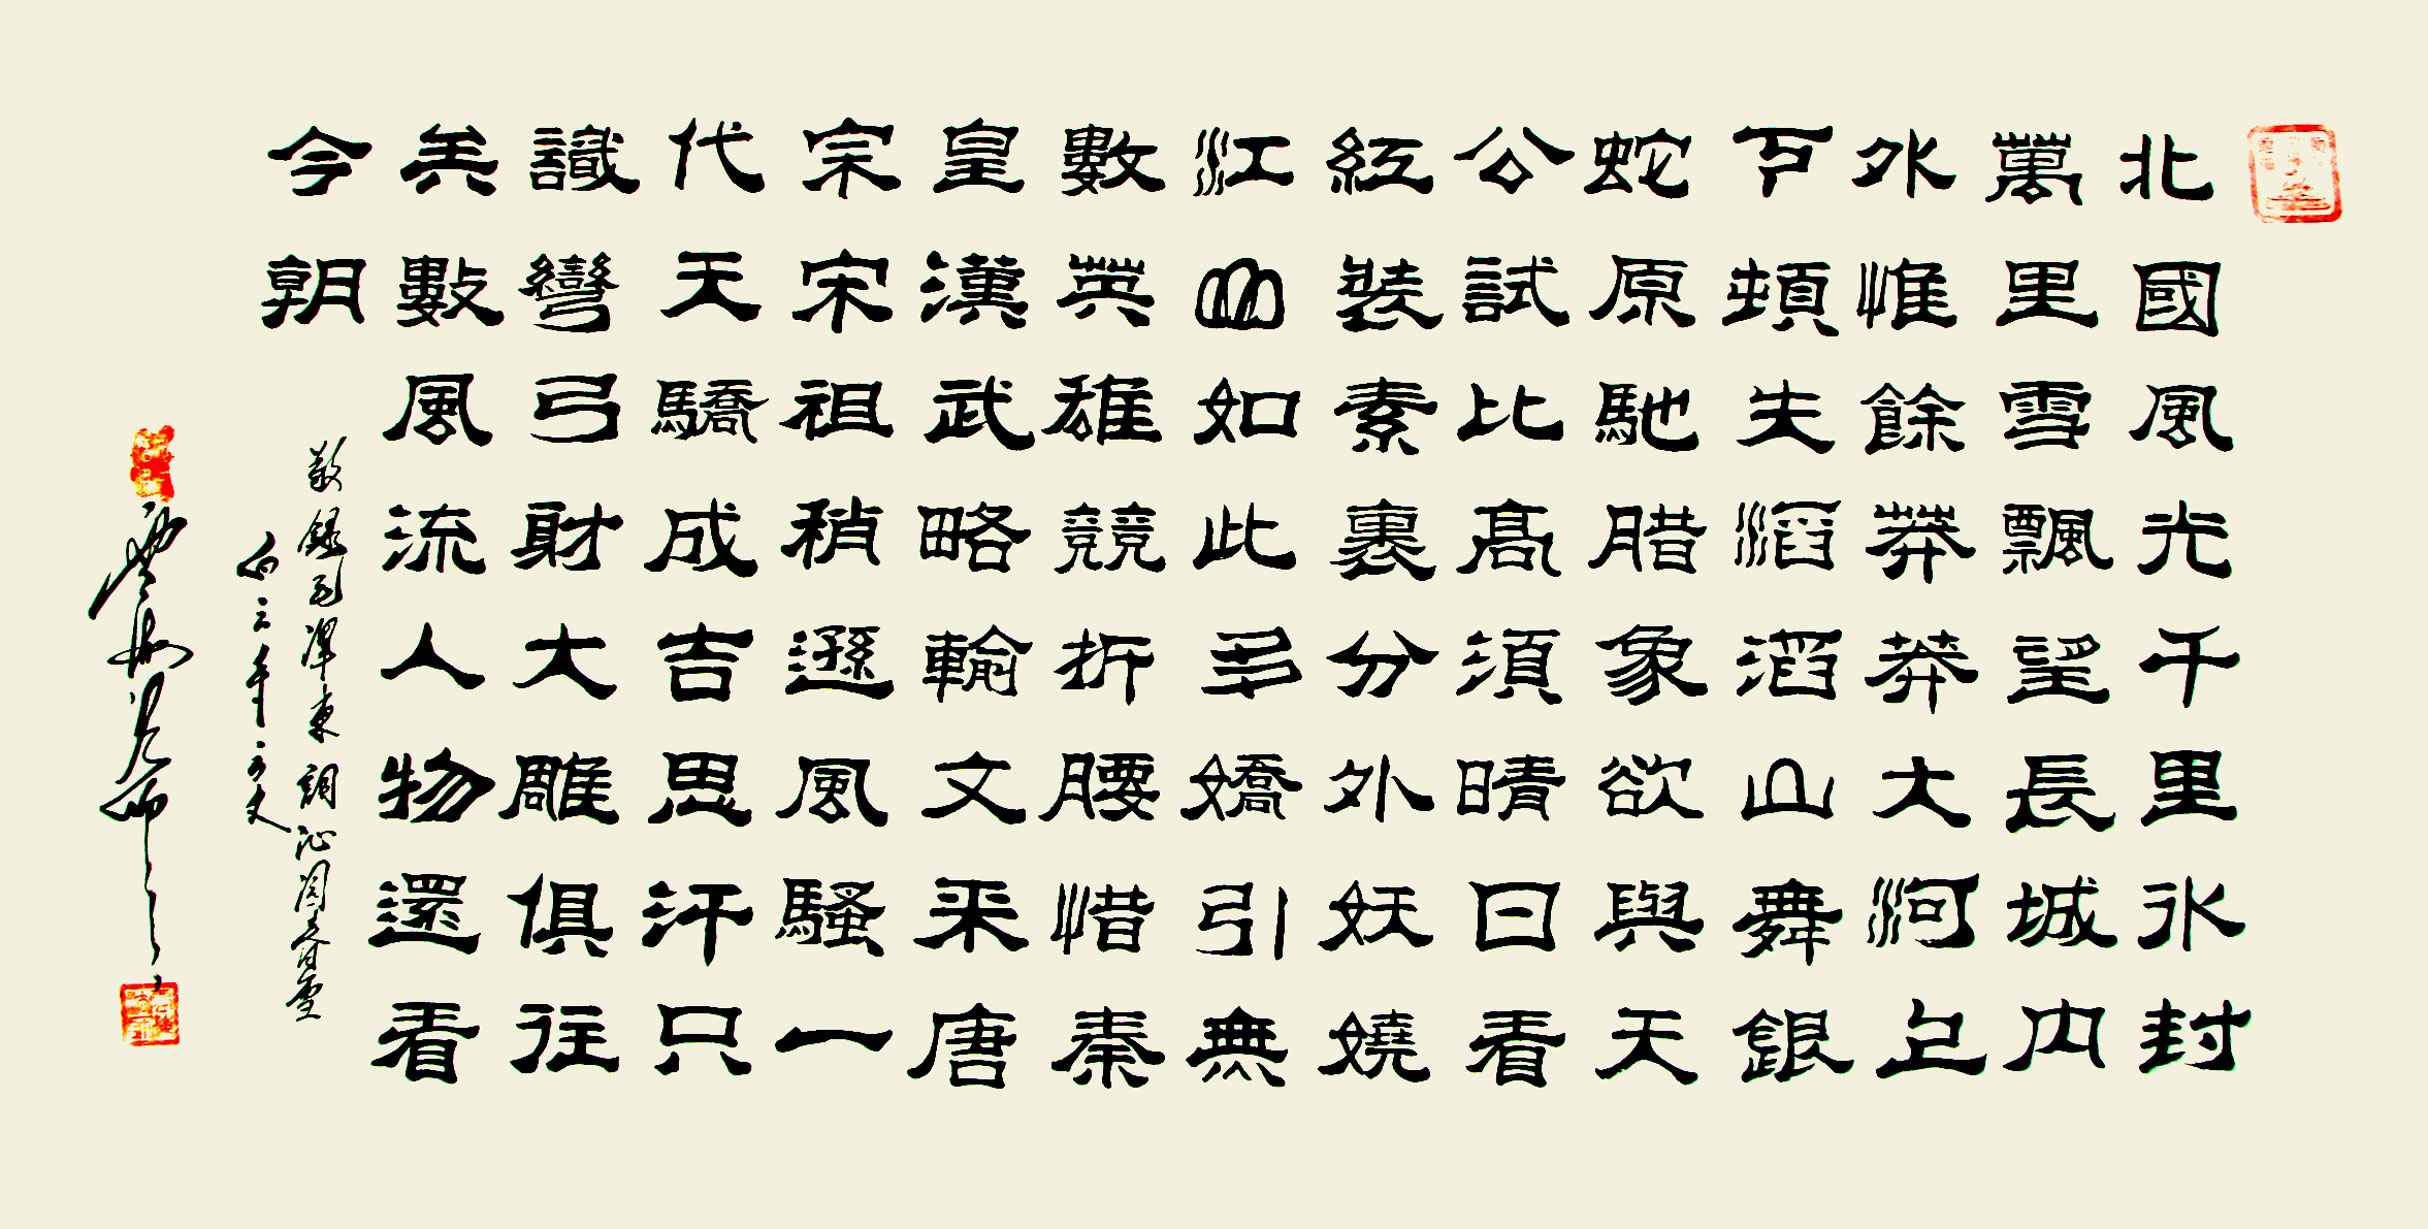 北國風光千里氷封
萬里雪飄望長城内
外惟餘莽莽大河上
下頓失滔滔山舞銀
蛇原馳腊象欲與天
公試比高須晴日看
紅裝素裏分外妖嬈
江山如此多嬌引無
數英雄競折腰惜秦
皇漢武略輸文采唐
宗宋祖稍遜風騷一
代天驕成吉思汗只
識彎弓射大雕俱往
矣數風流人物還看
今朝
敬錄毛澤東詞沁園春雪